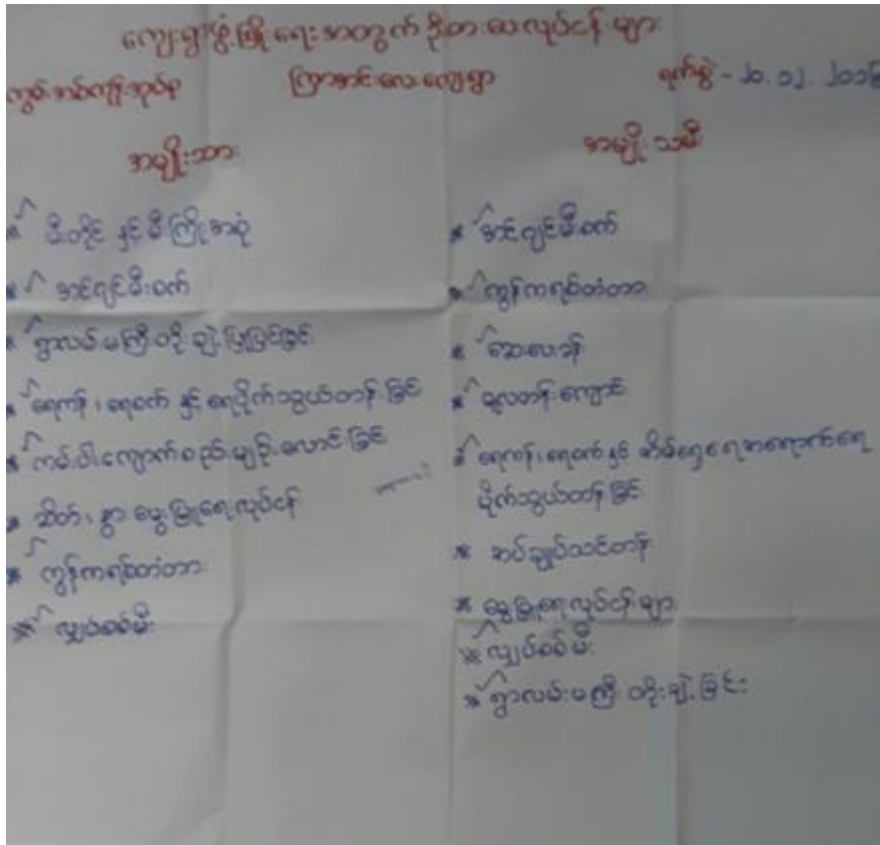 ကျေးရွာဖွံ့ဖြိုးရေးအတွက် ဦးစားပေးလုပ်ငန်းများ
ကြာအင်းလေးကျေးရွာ
ရက်စွဲ - ၂၀.၁၂.၂၀၁၆
အမျိုးသား
အမျိုးသမီး
* မီးတိုင် နှင့် မီးကြိုးအစုံ
* အင်ဂျင်မီးစက်
* ရွာလမ်းမကြီး တိုးချဲ့ပြုပြင်ခြင်း
* ရေကန်၊ ရေစက် နှင့် ရေပိုက်သွယ်တန်းခြင်း
* ကမ်းပါးကျောက်စည်း လောင်းခြင်း
* ဆိတ်၊ နွား မွေးမြူရေးလုပ်ငန်း
* ကွန်ကရစ်တံတား
* လျှပ်စစ်မီး
* အင်ဂျင်မီးစက်
* ကွန်ကရစ်တံတား
* ဆေးပေးခန်း
* မူလတန်းကျောင်း
* ရေကန်၊ ရေစက်နှင့် အိမ်ရှေ့ရေအရောက်ရေ
ပိုက်သွယ်တန်းခြင်း
* စပ်ချုပ်သင်တန်း
* မွေးမြူရေးလုပ်ငန်းများ
* လျှပ်စစ်မီး
* ရွာလမ်းမကြီး တိုးချဲ့ခြင်း